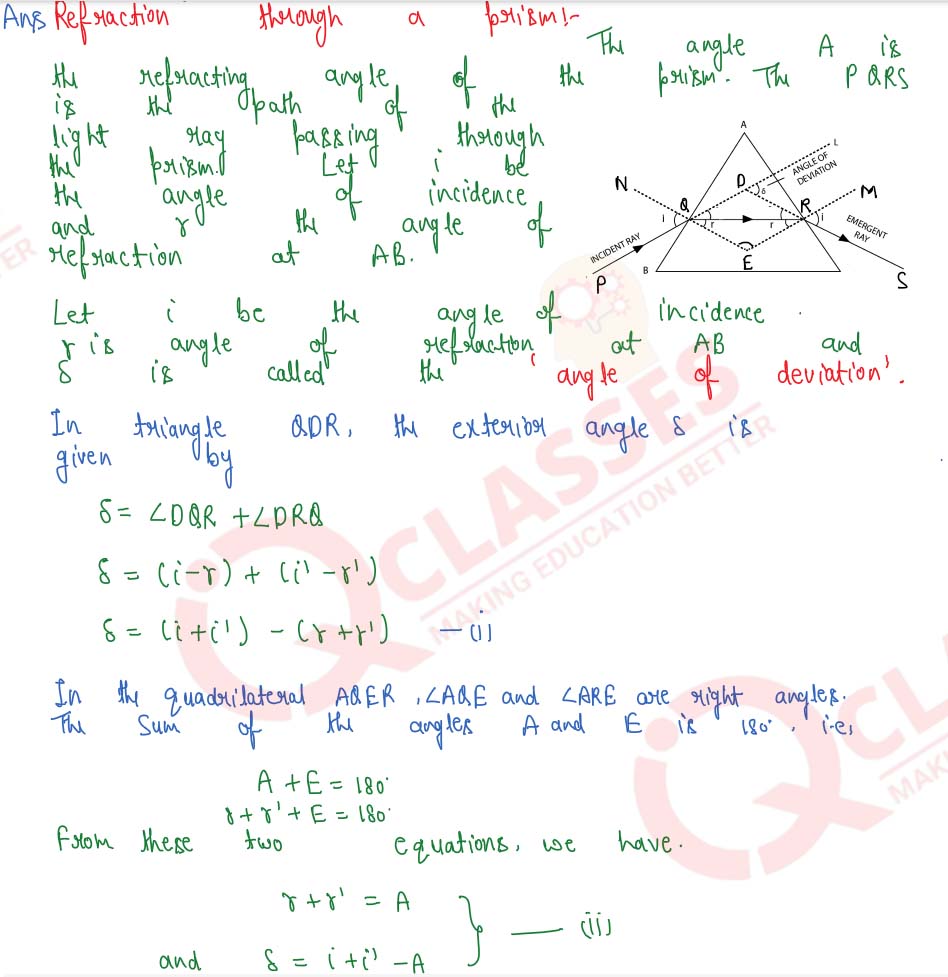 Ans Refraction through a prism:-
The angle A is
the refracting angle of the prism. The PQRS
is the path of the
light ray passing through
the prism. Let i be
the angle of incidence
and r the angle of
refraction at AB.
A
L
ANGLE OF
DEVIATION
N
D
δ
M
Q
R
i
r
r
i
EMERGENT
RAY
INCIDENT RAY
E
B
P
S
Let i be the angle of incidence.
r is angle of refraction at AB and
δ is called the 'angle of deviation'.
In triangle QDR, the exterior angle δ is
given by
δ = ∠DQR + ∠DRQ
δ = (i-r) + (i' - r')
δ = (i + i') - (r + r') —(i)
In the quadrilateral AQER, ∠AQE and ∠ARE are right angles.
The Sum of the angles A and E is 180°, i.e,
A + E = 180°
r + r' + E = 180°
From these two equations, we have.
r + r' = A
and δ = i + i' - A
— (ii)
IQ CLASSES
MAKING EDUCATION BETTER